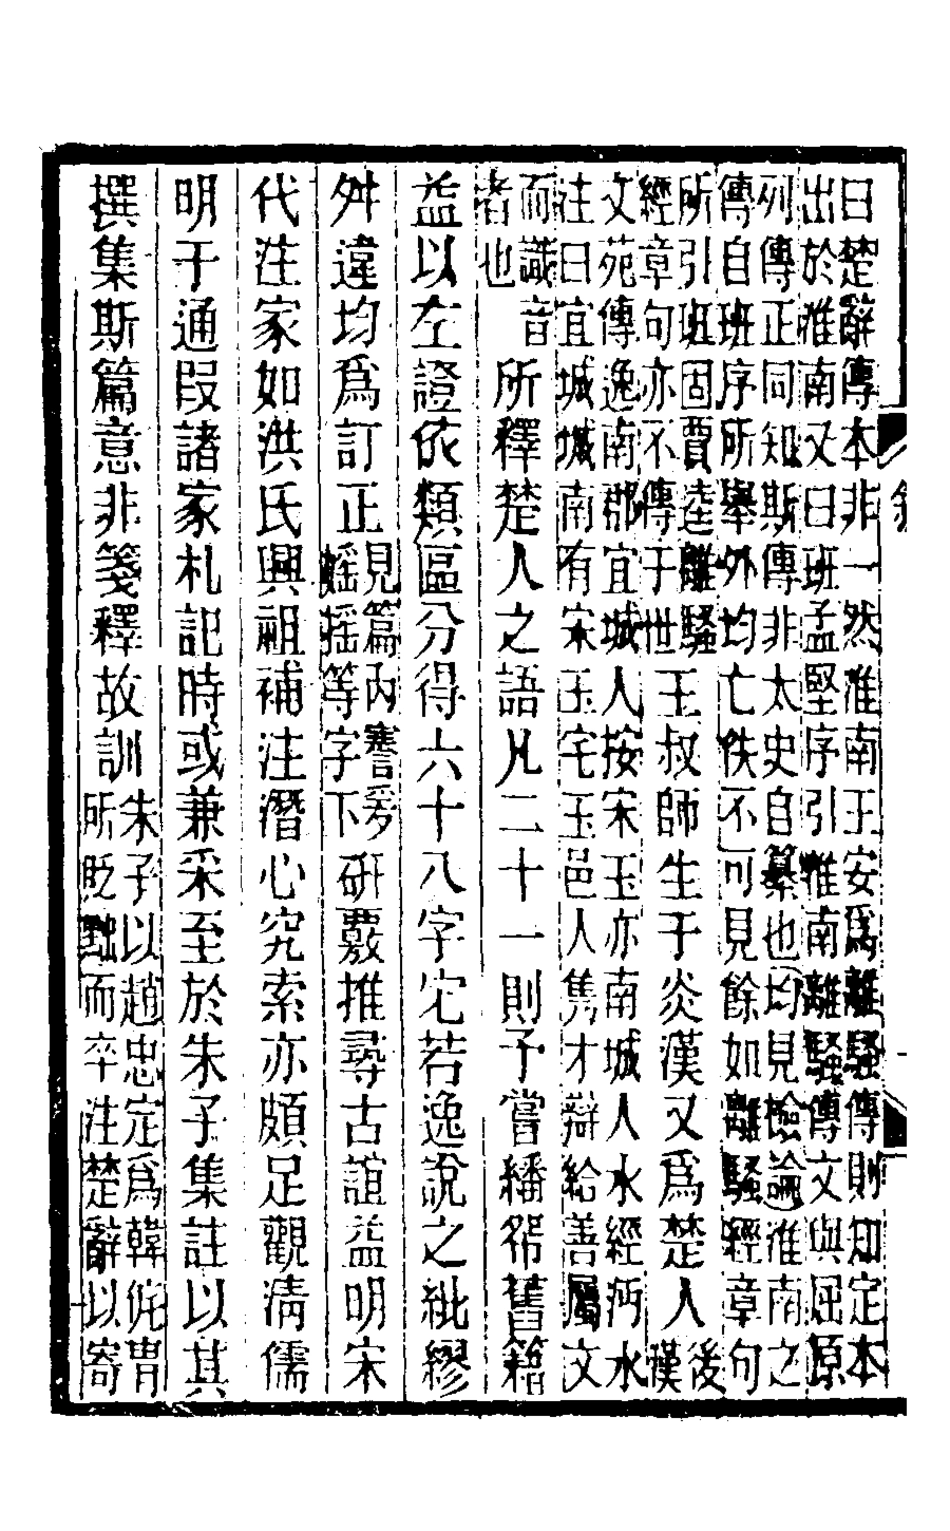 曰楚辭傳本非一然淮南王安爲離騷傳則知定本
出於淮南又曰班孟堅序引淮南離騷傳文與屈原
列傳正同知斯傳非太史自纂也(均見檢論)淮南之
傳自班序所舉外均亡佚不可見餘如離騷經章句
所引班固賈逵離騷
經章句亦不傳于世
王叔師生于炎漢又爲楚人
後
漢
文苑傳逸南郡宜城人按宋玉亦南城人水經沔水
注曰宜城城南有宋玉宅玉邑人雋才辯給善屬文
而識音
者也
所釋楚人之語凡二十一則予嘗繙帋舊籍
益以左證依類區分得六十八字它若逸說之紕繆
舛違均爲訂正
見篇內謇
搖等字下
研覈推尋古誼益明宋
代注家如洪氏興祖補注潛心究索亦頗足觀清儒
明于通叚諸家札記時或兼采至於朱子集註以其
撰集斯篇意非箋釋故訓
朱子以趙忠定爲韓侂冑
所貶黜而卒注楚辭以寄